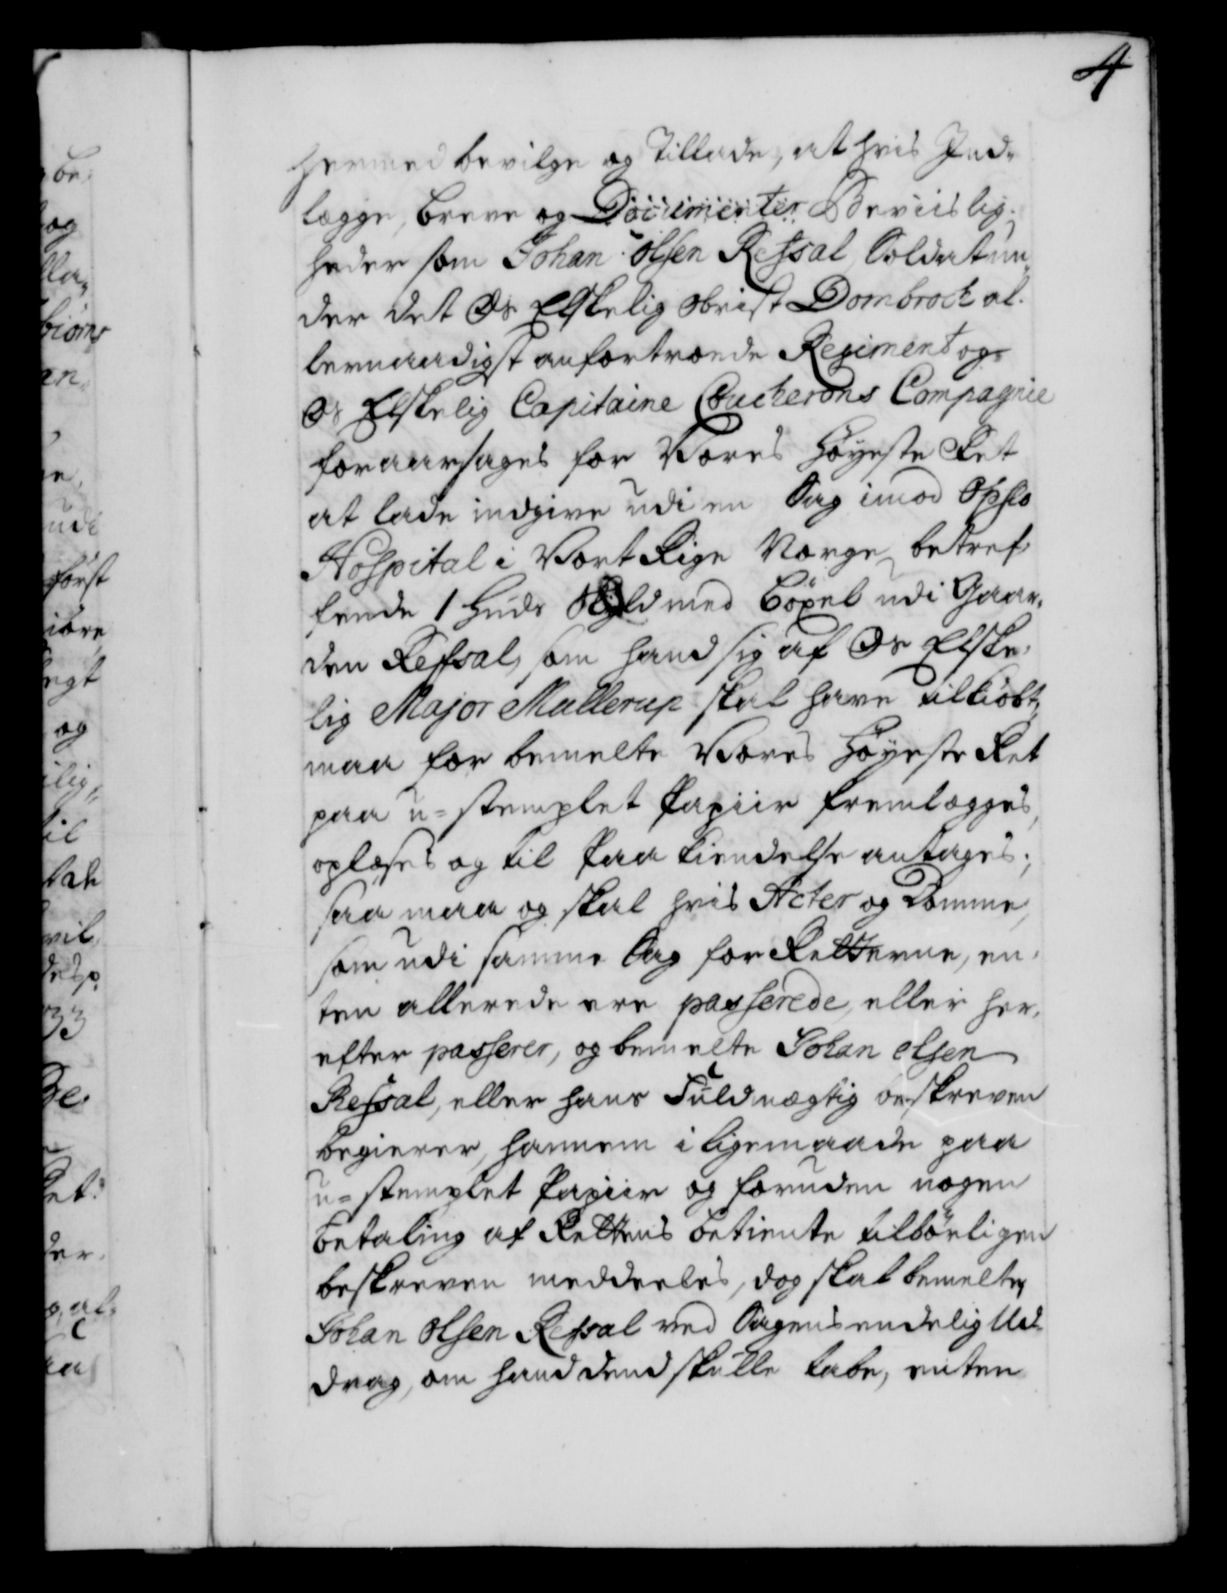 4
hermed bevilge og Tillade, at hvis Ind-
lægge, breve og Documenter Beviislig-
heder som Johan Olsen Refsal, Soldat un-
der det Os Elskelig Obrist Dombrock al-
lernaadigst anfortroede Regiment og
Os Elskelig Capitaine Coucherons Compagnie
foraarsages for Vores Høyeste Ret
at lade indgive udi en Sag imod Opslo
Hospital i Vort Rige Norge, betref-
fende 1 Huds Skyld med Böxel udi Gaar-
den Refsal, som hand sig af Os Elske-
lig Major Mullerup skal have tilkiöbt,
maa for bemelte Vores Høyeste Ret
paa u=stemplet Papiir fremlægges,
oplæses og til Paakiendelse antages;
saa maa og skal hvis Acter og Domme,
som udi samme Sag for Retterne, en-
ten allerede ere passerede, eller her-
efter passerer, og bemelte Johan Olsen
Refsal, eller hans Fuldmægtig beskreven
begierer, hannem i ligemaade paa
u=stemplet Papiir og foruden nogen
betaling af Rettens betiente tilbörligen
beskreven meddeeles, dog skal bemelte
Johan Olsen Refsal ved Sagens endelig Ud-
drag, om hand dend skulle tabe, enten
be-
og
lla-
biörns
en-
udi
først
iöre
egt
og
ilig-
il
vil
33
Be-
Ret
der-
al-